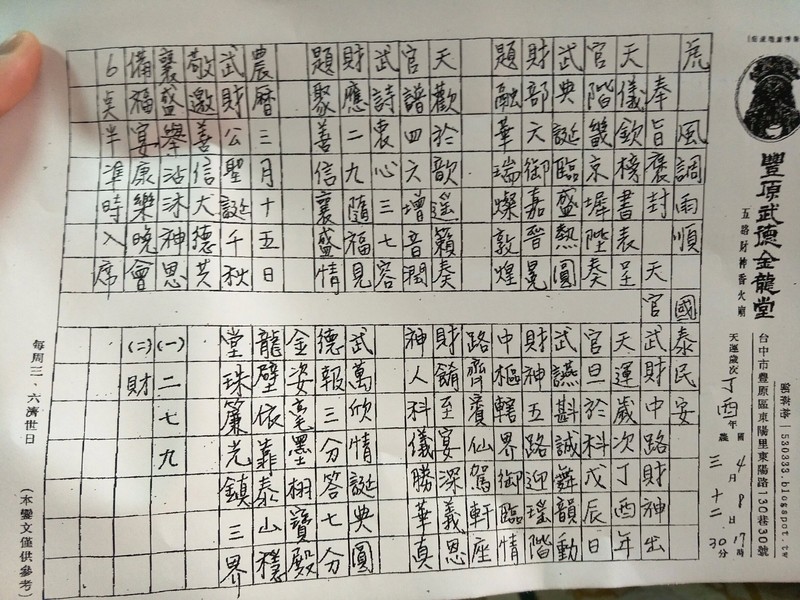 豐原武德金龍堂
五路財神香火廟
台中市豐原區東陽里東陽路130巷30號
530333.blogspot.tw
天運歲次丁酉年 國 4月8日17時30分
農 三 十二
虎 風調雨順 國泰民安
奉旨褒封 天官武財中路財神出
天儀欽榜書表呈
官階畿京墀陛奏
武典誕臨盛熱圓
財部六御嘉晉晃
題融華瑞燦敦煌
天歡於歆謠籟奏
官譜四六增音潤
武詩衷心三七容
財應二九隨福見
題聚善信襄盛情
農曆三月十五日
武財公聖誕千秋
敬邀善信大德共
襄盛舉沾沐神恩
備福宴康樂晚會
6點半準時入席
天運歲次丁酉年
官旦於科戊辰日
武讌斟誠舞韻動
財神五路迎瑤階
中樞轄界御臨情
路齊賓仙駕軒座
財餚至宴深義恩
神人科儀勝華真
武萬欣情誕典圓
德報三分答七分
金姿毫墨栩寶殿
龍壁依靠泰山穩
堂珠簾光鎮三界
(一)二七九
(二)財
每周三、六濟世日
(本鸞文僅供參考)